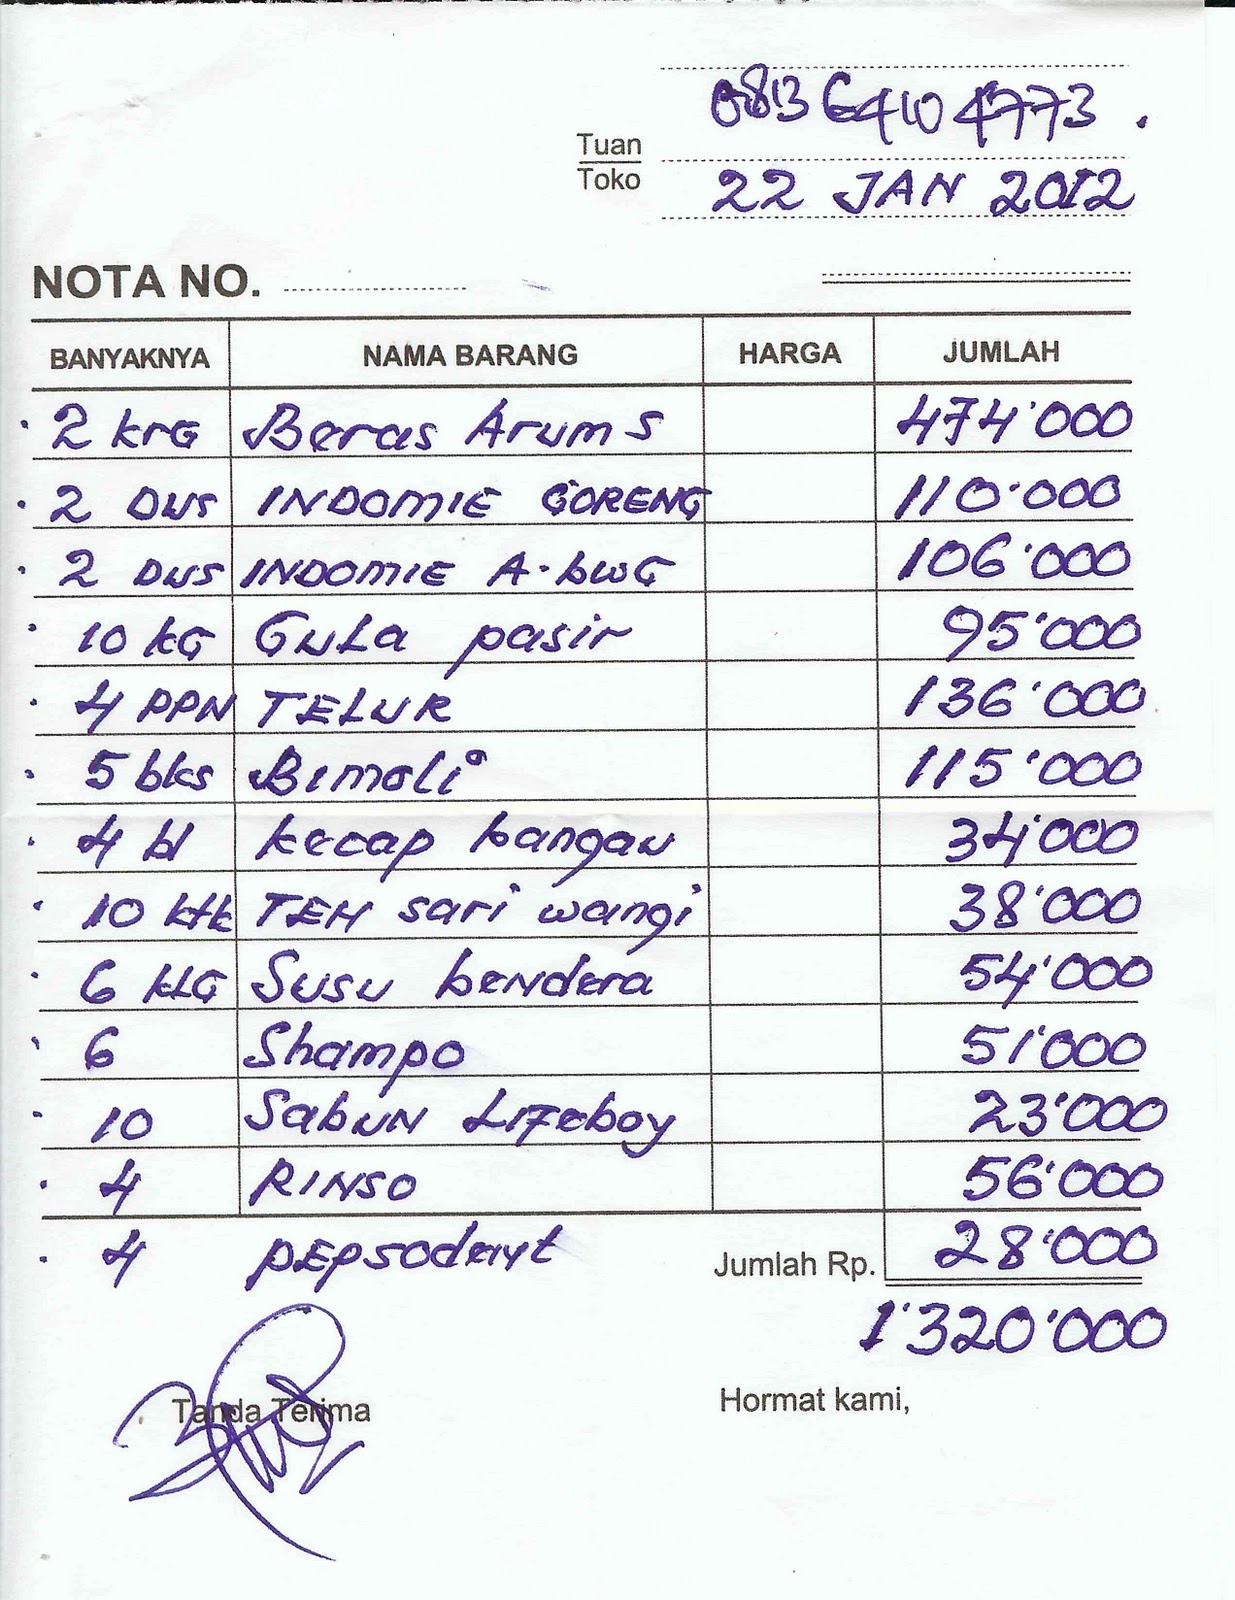 0813 6410 4773.
Tuan
Toko
22 JAN 2012
NOTA NO.
BANYAKNYA NAMA BARANG HARGA JUMLAH
2 krG Beras Arum S 474'000
2 DUS INDOMIE GORENG 110'000
2 DUS INDOMIE A.bwG 106'000
10 kG GULa pasir 95'000
4 PPN TELUR 136'000
5 bks Bimoli 115'000
4 bl kecap bangau 34'000
10 ktk TEH sari wangi 38'000
6 kLG Susu bendera 54'000
6 Shampo 51'000
10 SabUN Lifeboy 23'000
4 RINSO 56'000
4 pEpsodent Jumlah Rp. 28'000
1'320'000
Tanda Terima Hormat kami,